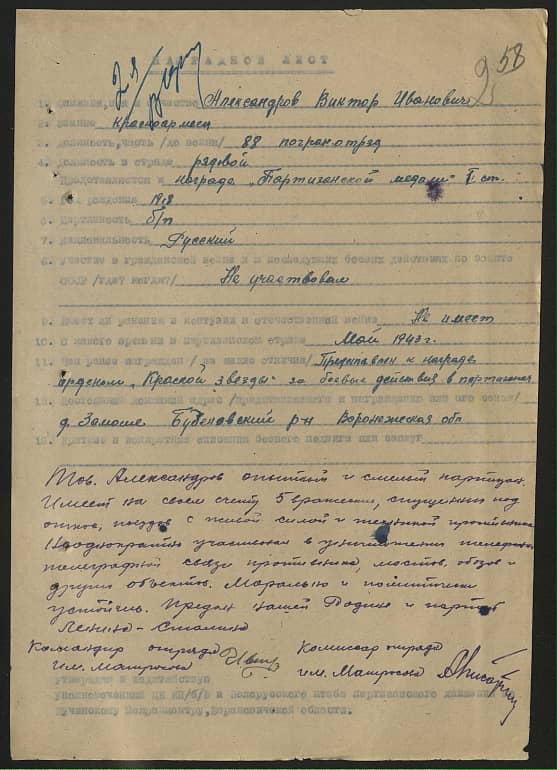 58
НАГРАДНОЙ ЛИСТ
1. Фамилия, имя и отчество Александров Виктор Иванович
2. Звание Красноармеец
3. Должность, часть /до войны/ 88 погранотряд
4. Должность в отряде рядовой
Представляется к награде „Партизанской медали" I ст.
5. Год рождения
6. Партийность б/п
7. Национальность Русский
8. Участие в гражданской войне и последующих боевых действиях по защите
СССР /где? когда?/ Не участвовал
9. Имеет ли ранения и контузии в отечественной войне Не имеет
10. С какого времени в партизанском отряде Май 1943 г.
11. Чем ранее награжден / за какие отличия/ Представлен к награде
орденом „Красной звезды" за боевые действия в
12. Постоянный домашний адрес /представляемого к награждению или его семьи/
д. Р-н Воронежская обл
13. Краткое и конкретное описание боевого подвига или заслуг
Тов. Александров опытный и смелый партизан.
Имеет на своем счету 5 вражеских, спущенных под
откос, поездов с живой силой и техникой противника
Неоднократно участвовал в уничтожении
телеграфной связи противника, мостов, обозов и
других объектов. Морально и политически
устойчив. Предан нашей Родине и партии
Ленина-Сталина
Командир отряда Комиссар отряда
им. Матросова им. Матросова
Утверждаю и ходатайствую
Уполномоченный ЦК КП/б/Б и Белорусского штаба партизанского движения
Барановичской области.